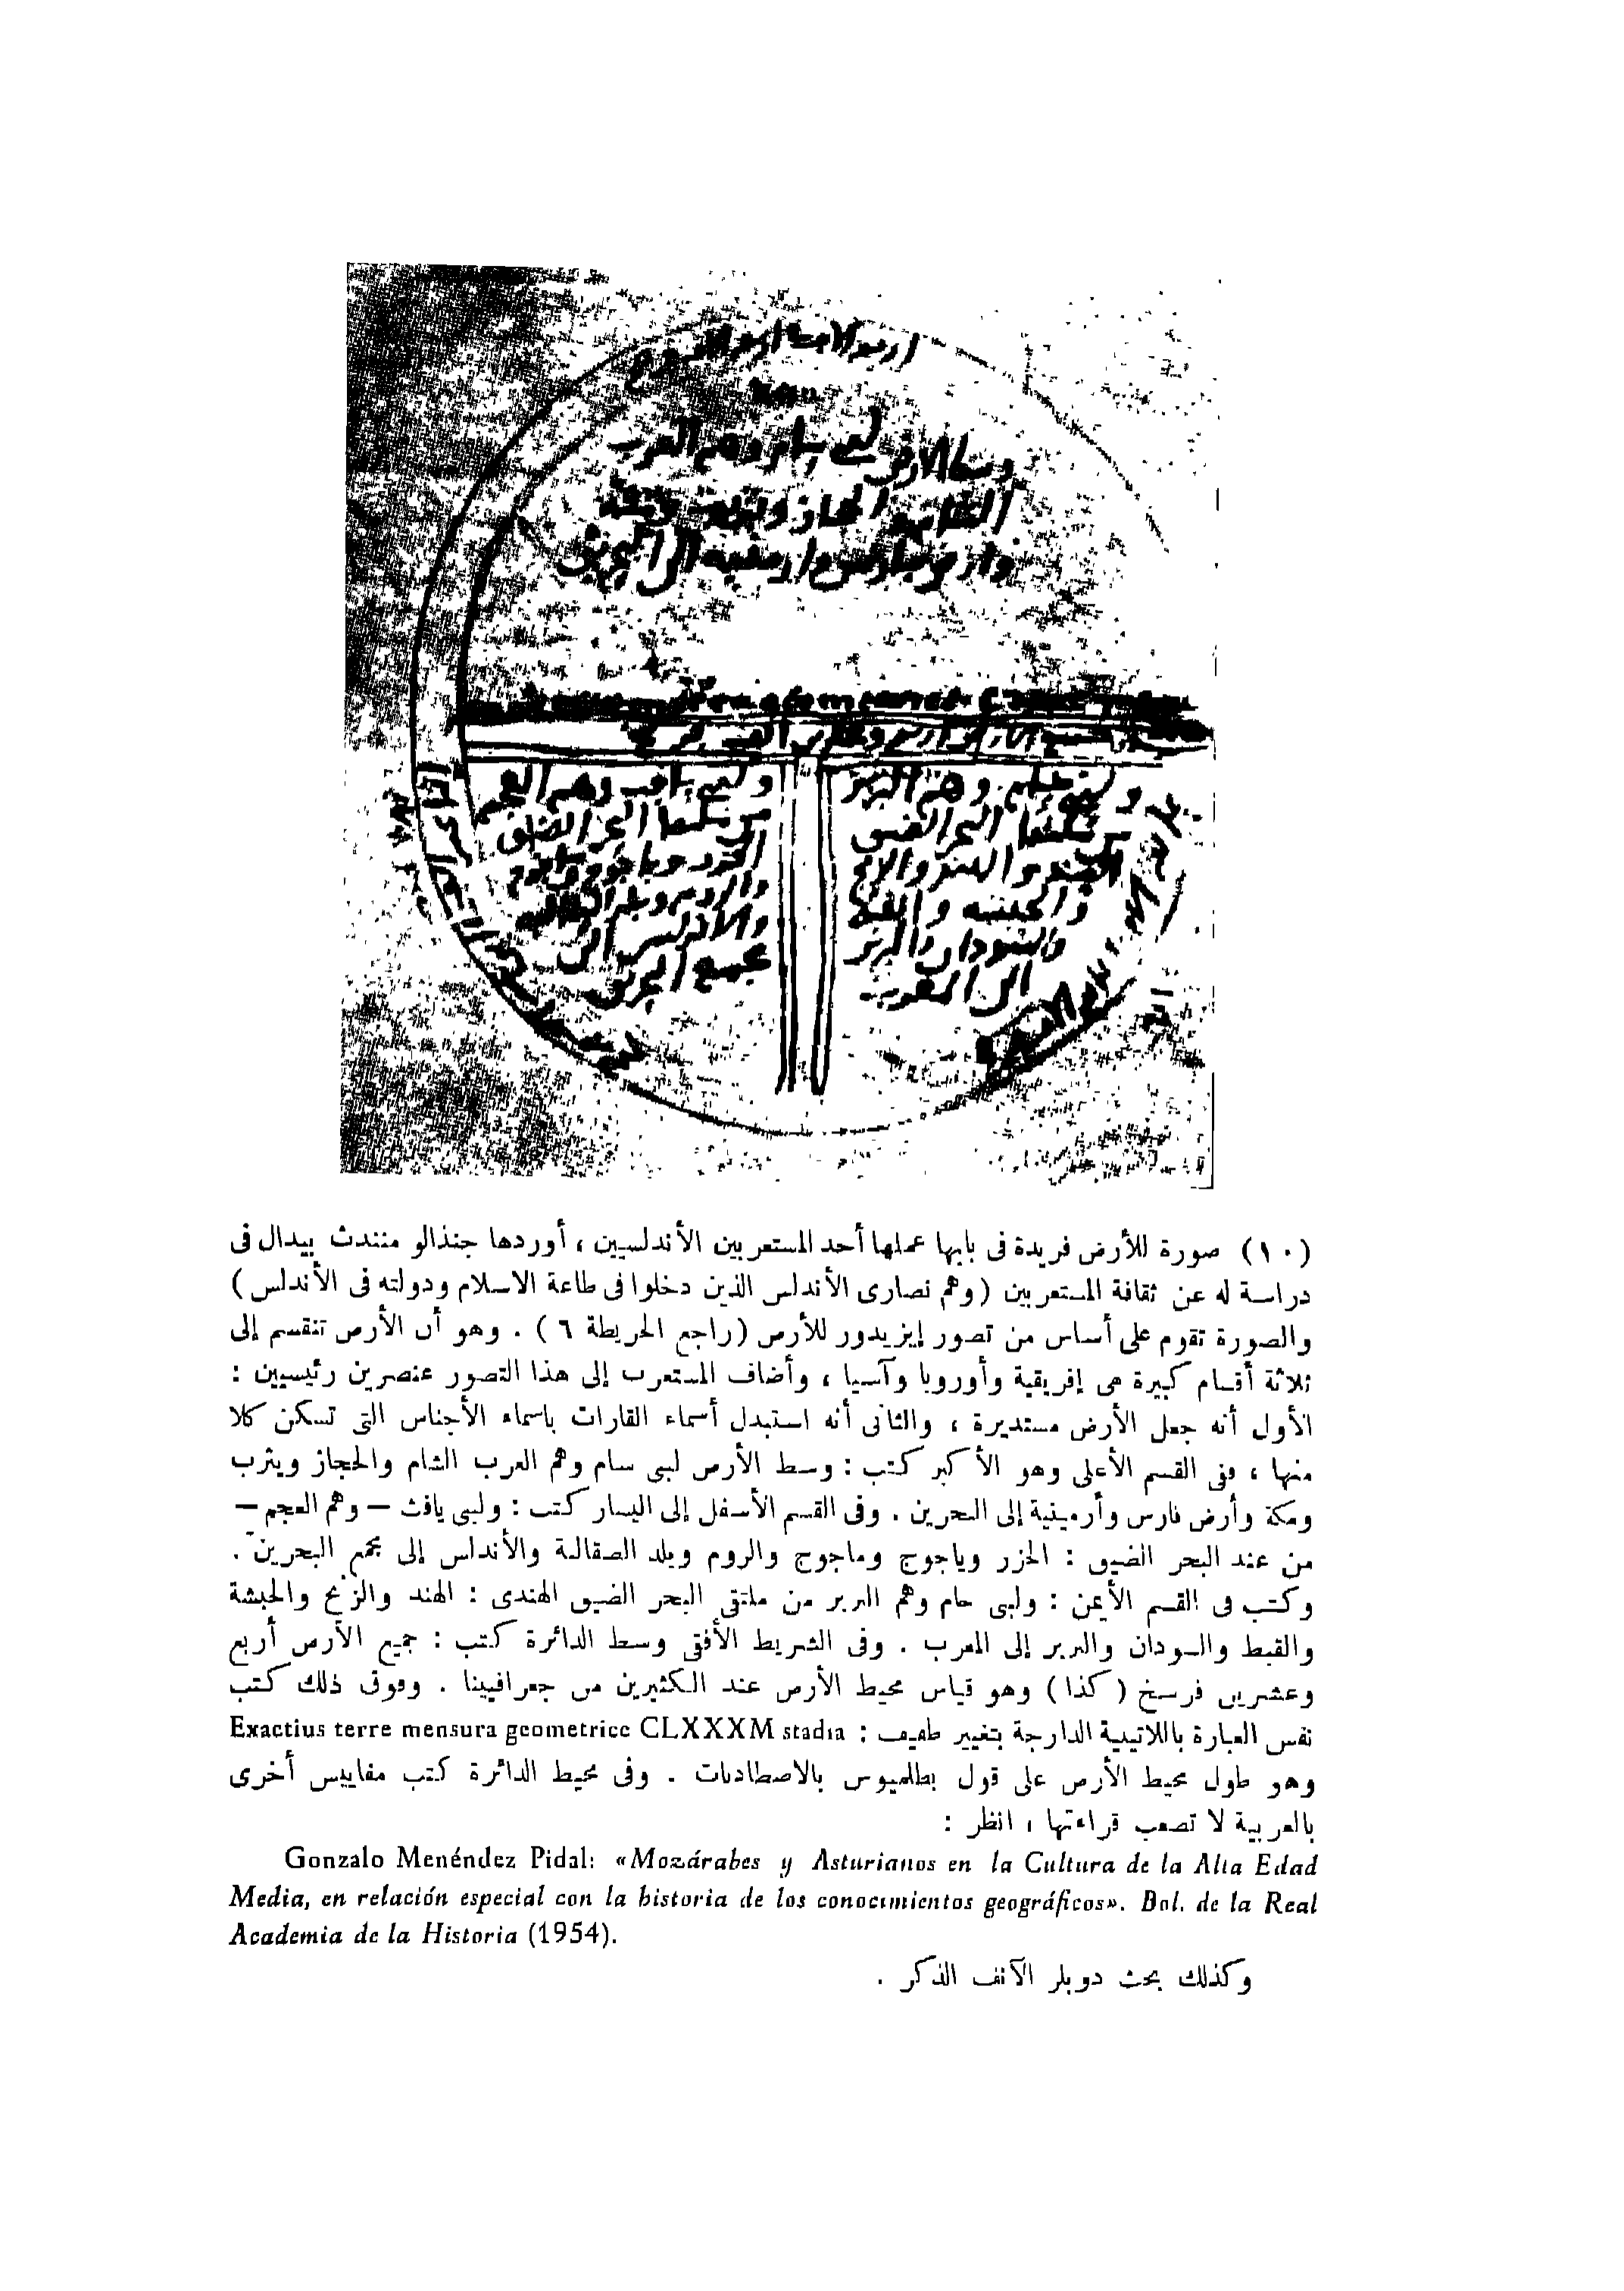 وسط الارض لبني سام وهم العرب
الشام والحجاز ويثرب ومكة
وارض فارس وارمينية الى البحرين
ولبني حام وهم البربر
البحر الضيق
الهند والسند والزنج
والحبشة والقبط
والسودان والبربر
الى المغرب
ولبني يافث وهم العجم
من البحر الضيق
الخزر وياجوج وماجوج
والروم وبلد الصقالبة
والاندلس الى
مجمع البحرين
(١٠) صورة للأرض فريدة فى بابها عملها أحد المستعربين الأندلسيين ، أوردها جنذالو منندث بيدال فى
دراسة له عن ثقافة المستعربين (وهم نصارى الأندلس الذين دخلوا فى طاعة الاسلام ودولته فى الأندلس)
والصورة تقوم على أساس من تصور إيزيدور للأرض (راجع الخريطة ٦) . وهو أن الأرض تنقسم إلى
ثلاثة أقسام كبيرة هى إفريقية وأوروبا وآسيا ، وأضاف المستعرب إلى هذا التصور عنصرين رئيسيين :
الأول أنه جعل الأرض مستديرة ، والثانى أنه استبدل أسماء القارات باسماء الأجناس التى تسكن كلا
منها ، ففى القسم الأعلى وهو الأكبر كتب : وسط الأرض لبنى سام وهم العرب الشام والحجاز ويثرب
ومكة وأرض فارس وأرمينية إلى البحرين . وفى القسم الأسفل إلى اليسار كتب : ولبنى يافث — وهم العجم —
من عند البحر الضيق : الخزر وياجوج وماجوج والروم وبلد الصقالبة والأندلس إلى مجمع البحرين .
وكتب فى القسم الأيمن : ولبنى حام وهم البربر من ملتقى البحر الضيق الهندى : الهند والزنج والحبشة
والقبط والسودان والبربر إلى المغرب . وفى الشريط الأفقى وسط الدائرة كتب : جميع الأرض أربع
وعشرين فرسخ (كذا) وهو قياس محيط الأرض عند الكثيرين من جغرافيينا . وفوق ذلك كتب
نفس العبارة باللاتينية الدارجة بتغيير طفيف : Exactius terre mensura geometrice CLXXXM stadia
وهو طول محيط الأرض على قول بطلميوس بالاصطاديات . وفى محيط الدائرة كتب مقاييس أخرى
بالعربية لا تصعب قراءتها ، انظر :
Gonzalo Menéndez Pidal: «Mozárabes y Asturianos en la Cultura de la Alta Edad
Media, en relación especial con la historia de los conocimientos geográficos». Bol. de la Real
Academia de la Historia (1954).
وكذلك بحث دوبلر الآنف الذكر .